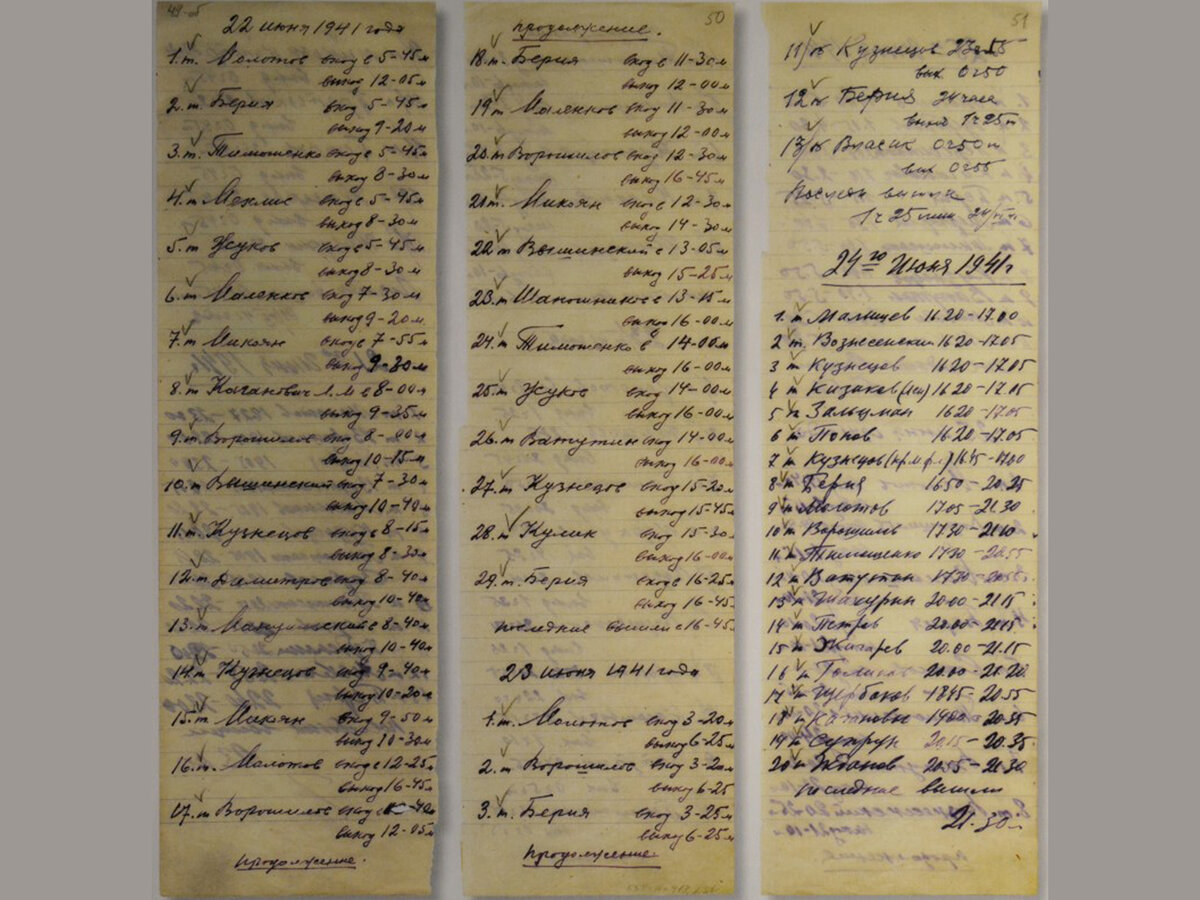 49-об
22 июня 1941 года
1. т. Молотов вход в 5-45м
выход 12-05м
2. т. Берия вход 5-45м
выход 9-20м
3. т. Тимошенко вход в 5-45м
выход 8-30м
4. т. Мехлис вход в 5-45м
выход 8-30м
5. т Жуков вход в 5-45м
выход 8-30м
6. т Маленков вход 7-30м
выход 9-20м
7. т. Микоян вход в 7-55м
выход 9-30м
8. т Каганович Л.М в 8-00м
выход 9-35м
9. т. Ворошилов вход 8-00м
выход 10-15м
10. т Вышинский вход 7-30м
выход 10-40м
11. т. Кузнецов вход в 8-15м
выход 8-30м
12. т Димитров вход 8-40м
выход 10-40м
13. т. Мануильский в 8-40м
выход 10-40м
14. т Кузнецов вход 9-40м
выход 10-20м
15. т Микоян вход 9-50м
выход 10-30м
16. т. Молотов вход в 12-25
выход 16-45м
17. т Ворошилов вход в -40м
выход 12-05м
продолжение.
50
продолжение.
18. т. Берия вход в 11-30м
выход 12-00м
19 т Маленков вход 11-30м
выход 12-00м
20. т Ворошилов вход 12-30м
выход 16-45м
21. т. Микоян вход в 12-30м
выход 14-30м
22 т Вышинский в 13-05м
выход 15-25м
23. т Шапошников в 13-15м
выход 16-00м
24. т Тимошенко в 14-00м
выход 16-00м
25. т Жуков вход 14-00м
выход 16-00м
26. т Ватутин вход 14-00м
выход 16-00м
27. т Кузнецов вход 15-20м
выход 15-45м
28. т Кулик вход 15-30м
выход 16-00м
29. т. Берия вход в 16-25м
выход 16-45
последние вышли в 16-45
23 июня 1941 года
1. т. Молотов вход 3-20м
выход 6-25м
2. т Ворошилов вход 3-20м
выход 6-25
3. т. Берия вход 3-25м
выход 6-25м
продолжение.
51
11) Кузнецов
вых 0 ч 50
12 Берия 24 часа
выход 1ч 25м
13) Власик 0 ч 50 м
вых 0 ч 55
1ч 25 мин
24го Июня 1941г
1. т Малышев 16.20-17.00
2 т. Вознесенский 16 20-17.05
3 т Кузнецов 16 20-17.05
4 т Кизаков (Лн) 16 20-17.05
5 т Зальцман 16 20-17.05
6 т Попов 16 20-17.05
7 т Кузнецов (кр. м. ф.) 16.45-17.00
8 т Берия 16 50-20.25
9 т Молотов 17.05-21.30
10 т Ворошилов 17.30-21.10
11 т Тимошенко 17 30-20.55
12 т Ватутин 17 30-20.55
13 т Шахурин 20.00-21.15
14 т Петров 20.00-21.15
15 т Жигарев 20.00-21.15
16 т Голиков 20.00-21.20
17 т Щербаков 18 45-20.55
18 т Каганович 19 00-20.35
19 т Супрун 20.15-20.35
20 т Жданов 20.55-21.30
последние вышли
21-30м